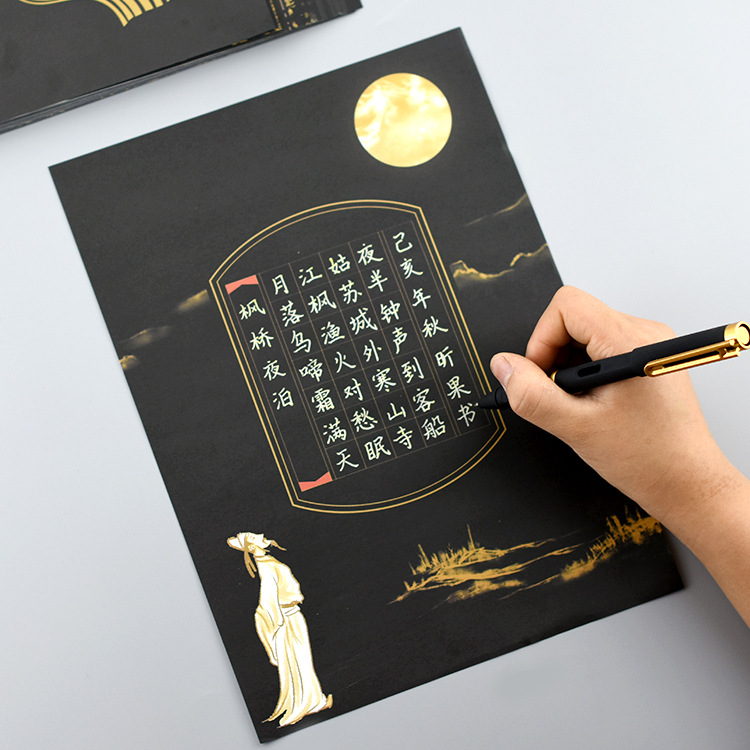 枫桥夜泊
月落乌啼霜满天
江枫渔火对愁眠
姑苏城外寒山寺
夜半钟声到客船
己亥年秋昕果书